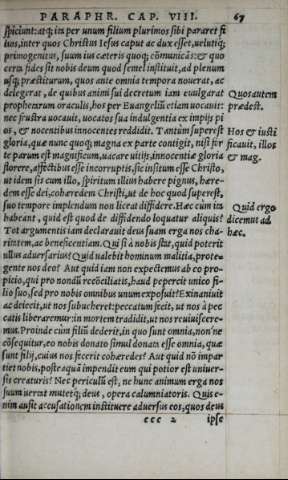 PARAPHR. CAP. VIII. 67
spiciunt: atq; ita per unum filium plurimos sibi pararet fi
ios, inter quos Christus Iesus caput ac dux esset, uelutiq;
primogenitus, suum ius cæteris quoq; cōmunicās: & quo
certa fides sit nobis deum quod semel instituit, ad plenum
usq; præstiturum, quos ante omnia tempora nouerat, ac
delegerat, de quibus animi sui decretum iam euulgarat
prophetarum oraculis, hos per Euangeliū etiam uocauit:
nec frustra uocauit, uocatos sua indulgentia ex impijs pi
os, & nocentibus innocentes reddidit. Tantùm superest
gloria, quæ nunc quoq; magna ex parte contigit, nisi for
te parum est magnificum, uacare uitijs, innocentiæ gloria
florere, affectibus esse incorruptis, sic insitum esse Christo,
ut idem sit cum illo, spiritum illius habere pignus, hære-
dem esse dei, cohæredem Christi, ut de hoc quod superest,
suo tempore implendum non liceat diffidere. Hæc cùm ita
habeant, quid est quod de diffidendo loquatur aliquis?
Tot argumentis iam declarauit deus suam erga nos cha-
ritatem, ac beneficentiam. Qui si à nobis stat, quid poterit
ullus aduersarius? Quid ualebit hominum malitia, prote-
gente nos deo? Aut quid iam non expectemus ab eo pro-
picio, qui pro nondū recōciliatis, haud pepercit unico fi-
lio suo, sed pro nobis omnibus unum exposuit? Exinaniuit
ac deiecit, ut nos subueheret: peccatum fecit, ut nos à pec
catis liberaremur: in mortem tradidit, ut nos reuiuiscere-
mus. Proinde cùm filiū dederit, in quo sunt omnia, non'ne
cōsequitur, eo nobis donato simul donata esse omnia, quæ
sunt filij, cuius nos fecerit cohæredes? Aut quid nō impar
tiet nobis, posteaquā impendit eum qui potior est uniuer-
sis creaturis? Nec periculū est, ne hunc animum erga nos
suum uertat mutetq; deus, opera calumniatoris. Quis e-
nim ausit accusationem instituere aduersus eos, quos deus
ccc 2 ipse
Quos autem
prædest.
Hos & iusti
ficauit, illos
& mag.
Quid ergo
dicemus ad
hæc.